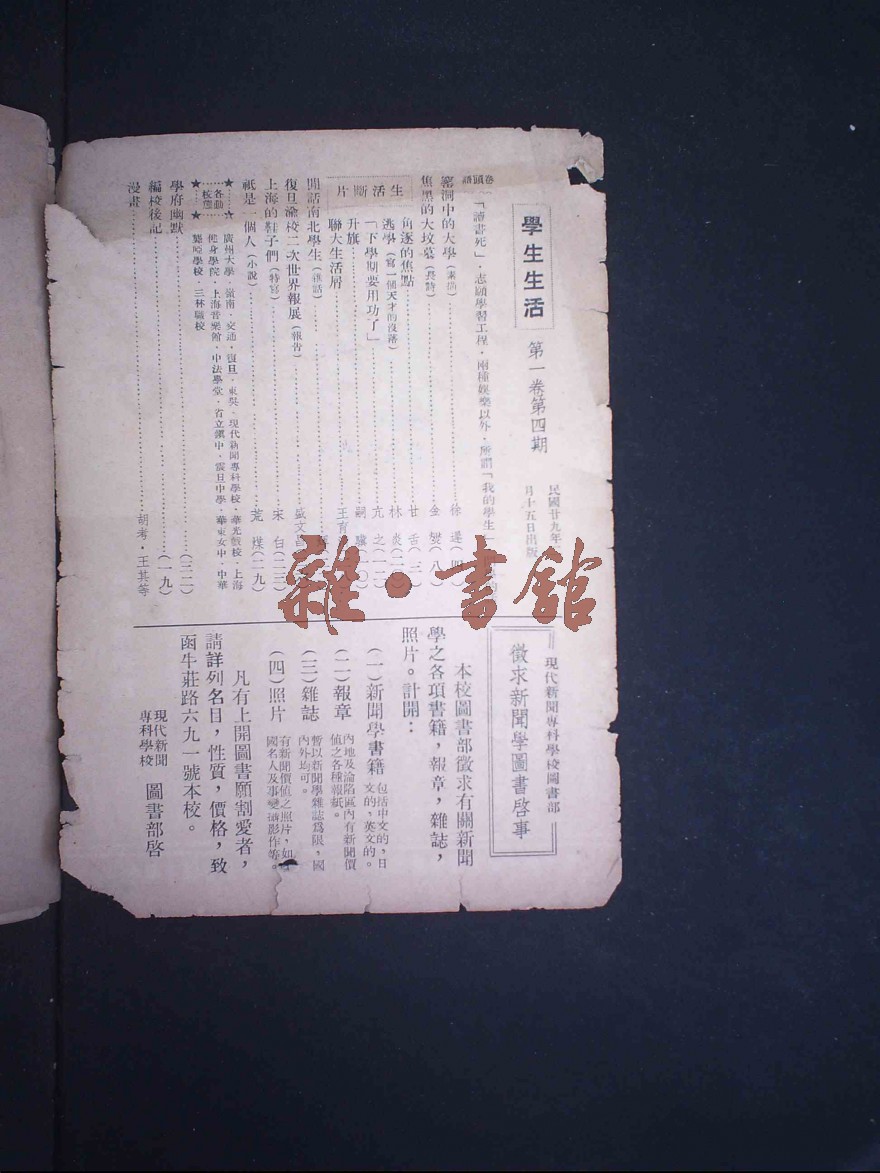 學生生活
第一卷第四期
民國廿九年
月十五日出版
卷頭語 「讀書死」·志願學習工程·兩種娛樂以外·所謂「我的學生
窰洞中的大學(素描)⋯⋯徐 遲(四
焦黑的大坟墓(長詩)⋯⋯金 燮(八)
生活斷片
角逐的焦點⋯⋯甘 舌(三)
逃學(寫一個天才的沒落)⋯⋯林 炎(二
「下學期要用功了」⋯⋯亢 之(一
升旗⋯⋯嗣 驥(一
聯大生活屑⋯⋯王育
閒話南北學生(雜話)
復旦渝校二次世界報展(報告)⋯⋯盛文
上海的鞋子們(特寫)⋯⋯宋 台(二三)
祇是一個人(小說)⋯⋯荒 煤(二九)
★⋯各校動態⋯★
廣州大學·嶺南·交通·復旦·東吳·現代新聞專科學校·華光戲校·上海
健身學院·上海音樂館·中法學堂·省立鎮中·震旦中學·華東女中·中華
聾啞學校·三林職校
學府幽默⋯⋯(三二)
編校後記⋯⋯(一九)
漫畫⋯⋯胡考·王其等
現代新聞專科學校圖書部
徵求新聞學圖書啓事
本校圖書部徵求有關新聞
學之各項書籍,報章,雜誌,
照片。計開:
(一)新聞學書籍 包括中文的,日
文的,英文的。
(二)報章 內地及淪陷區內有新聞價
值之各種報紙。
(三)雜誌 暫以新聞學雜誌爲限,國
內外均可。
(四)照片 有新聞價值之照片,如
國名人及事變攝影作等。
凡有上開圖書願割愛者,
請詳列名目,性質,價格,致
函牛莊路六九一號本校。
現代新聞
專科學校 圖書部啓
雜·書館